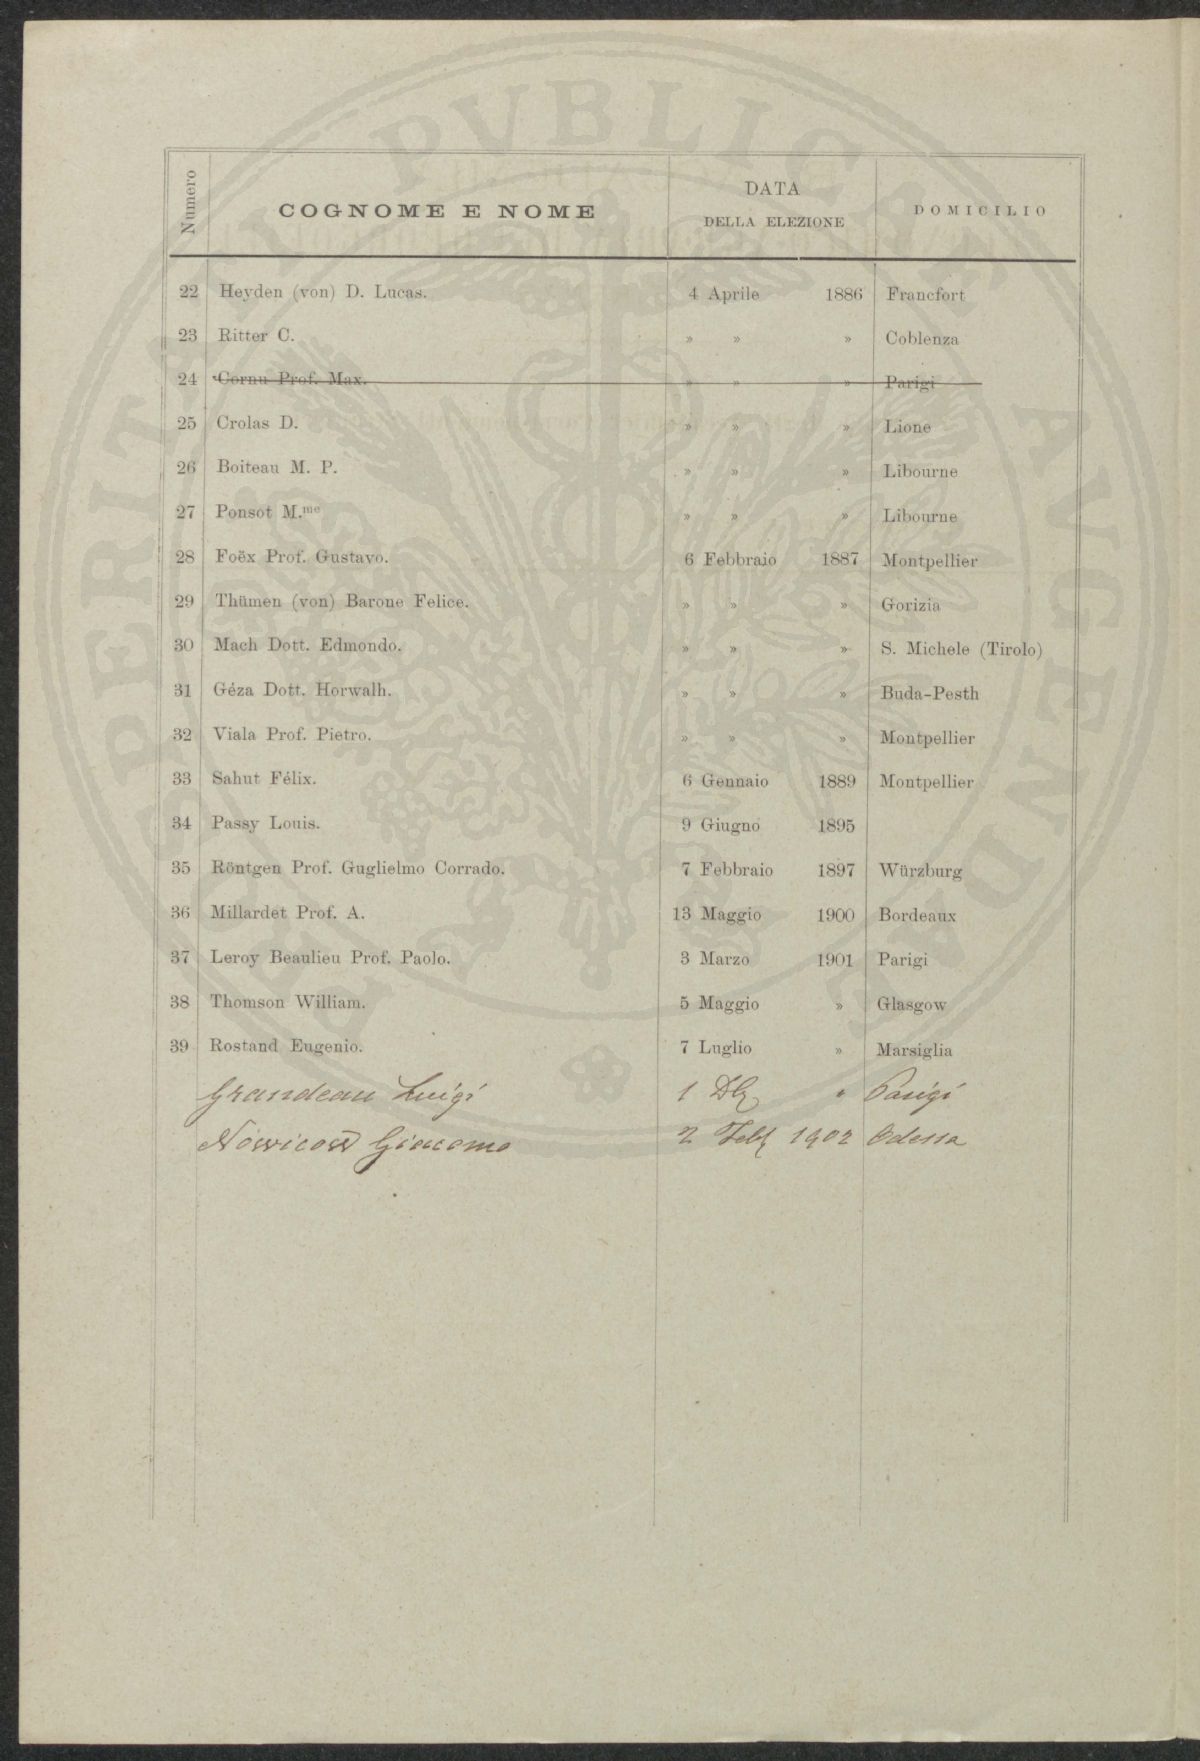 Numero COGNOME E NOME DATA DELLA ELEZIONE DOMICILIO
22 Heyden (von) D. Lucas. 4 Aprile 1886 Francfort
23 Ritter C. » » » Coblenza
24 Cornu Prof. Max. » » » Parigi
25 Crolas D. » » » Lione
26 Boiteau M. P. » » » Libourne
27 Ponsot M.me » » » Libourne
28 Foëx Prof. Gustavo. 6 Febbraio 1887 Montpellier
29 Thümen (von) Barone Felice. » » » Gorizia
30 Mach Dott. Edmondo. » » » S. Michele (Tirolo)
31 Géza Dott. Horwalh. » » » Buda-Pesth
32 Viala Prof. Pietro. » » » Montpellier
33 Sahut Félix. 6 Gennaio 1889 Montpellier
34 Passy Louis. 9 Giugno 1895
35 Röntgen Prof. Guglielmo Corrado. 7 Febbraio 1897 Würzburg
36 Millardet Prof. A. 13 Maggio 1900 Bordeaux
37 Leroy Beaulieu Prof. Paolo. 3 Marzo 1901 Parigi
38 Thomson William. 5 Maggio » Glasgow
39 Rostand Eugenio. 7 Luglio » Marsiglia
Grandeau Luigi 1 » Parigi
Novicow Giacomo 2 Feb 1902 Odessa